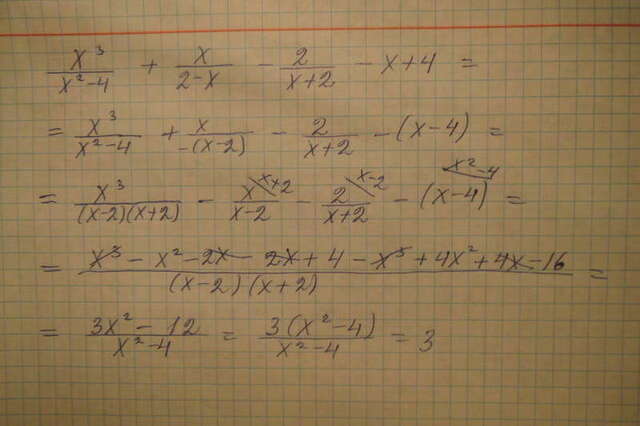 x³/(x²-4) + x/(2-x) - 2/(x+2) - x+4 =
= x³/(x²-4) + x/(-(x-2)) - 2/(x+2) - (x-4) =
= x³/((x-2)(x+2)) - x\x+2/(x-2) - 2\x-2/(x+2) - (x-4)\x²-4 =
= (x³ - x² - 2x - 2x + 4 - x³ + 4x² + 4x - 16)/((x-2)(x+2)) =
= (3x² - 12)/(x²-4) = 3(x²-4)/(x²-4) = 3